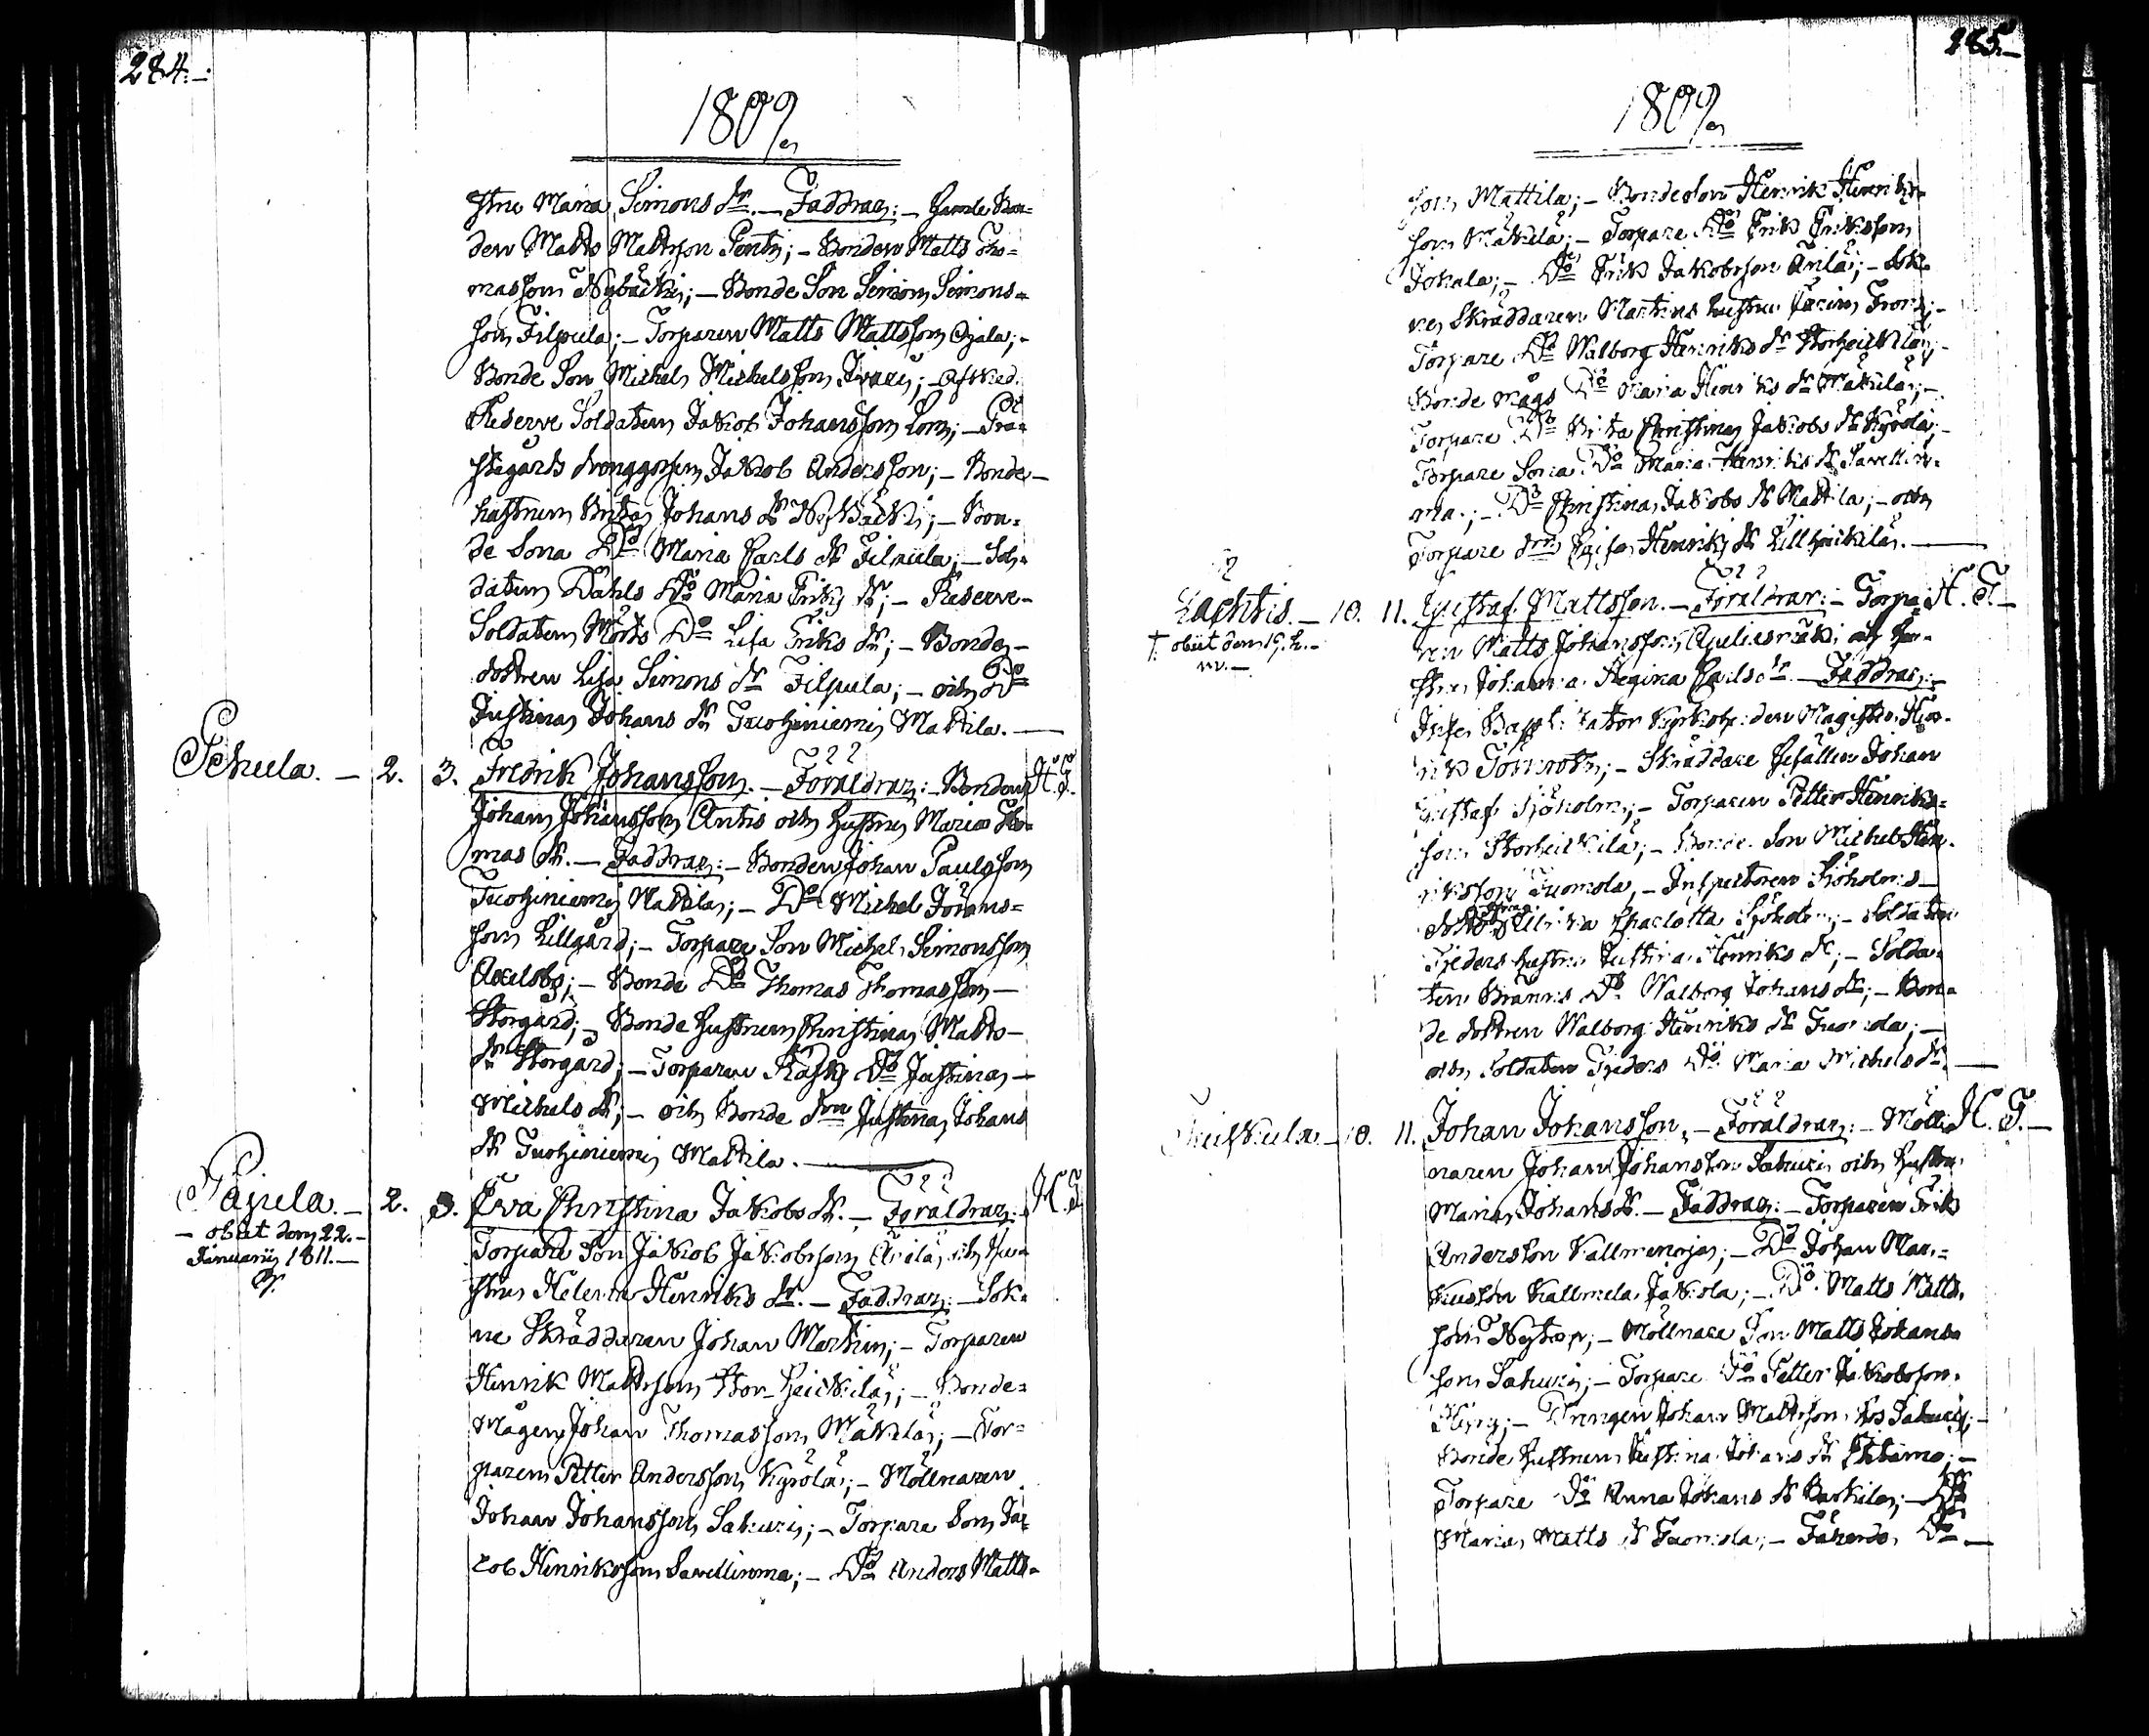 284.
1809.
stru Maria Simons dr. — Faddrar: — Gamle Bon=
den Matts Mattsson Pentti; — Bonden Matts Tho=
masson Nybacki; — Bonde Son Simon Simons=
son Filpula; — Torparen Matts Mattsson Ojala; —
Bonde Son Michel Michelsson Iivari; — Afsked.
Reserve Soldaten Jakob Johansson Lom; — Prä=
stegårds drenggossen Jakob Andersson; — Bonde —
hustrun Brita Johans dr Nybacki; — Bon=
de Sona Do Maria Carls dr Filpula; — Sol=
daten Dahls Do Maria Eriks dr; — Reserve —
Soldaten Mörks Do Lisa Eriks dr; — Bonde —
dottren Lisa Simons dr Filpula; — och Do
Justina Johans dr Tuohiniemi Mattila. —
Pehula. — 2. 3. Fredrik Johansson. — Föräldrar: — Bonden H. F.
Johan Johansson Antis och hustru Maria Tho=
mas dr. — Faddrar: — Bonden Johan Paulsson
Tuohiniemi Mattila; — Do Michel Jörans=
son Lillgård; — Torpare Son Michel Simonsson
Axelsby; — Bonde Do Thomas Thomasson —
Storgård; — Bonde hustrun Christina Matts —
dr Storgård; — Torparen Rasks Do Justina —
Michels dr; — och Bonde drn Justina Johans
dr Tuohiniemi Mattila. —
Pajula. — 2. 3. Eva Christina Jakobs dr. — Föräldrar: — H. F.
— obiit den 22. —
Januarii 1811. —
Torpare Son Jakob Jakobsson Arila och hu=
stru Helena Henriks dr. — Faddrar: — Sok=
ne Skräddaren Johan Martin; — Torparen
Henrik Mattsson Stor Heickilä; — Bonde=
Mågen Johan Thomasson Mäkilä; — Tor=
paren Petter Andersson Kyrölä; — Möllnaren
Johan Johansson Sakuri; — Torpare Son Ja=
cob Henriksson Savellinma; — Do Anders Matts=
285.
1809.
son Mattila; — Bondeson Henrik Henriks=
son Mäkilä; — Torpare Do Erik Eriksson
Jokala; — Do Erik Jakobsson Arila; — Sok=
nes Skräddaren Martins hustru Carin
Torpare Do Walborg Henriks dr Storheickilä; —
Bonde mågs Do Maria Henriks dr Mäkilä; —
Torpare Do Brita Christina Jakobs dr Kyrölä; —
Torpare Sona Do Maria Henriks dr Savellin=
ma; — Do Christina Jakobs dr Mattila; — och
Torpare drn Caisa Henriks dr Lillheickilä. —
Lachtis. — 10. 11. Gustaf Mattsson. — Föräldrar: — Torpa= H. F. —
†. obiit den 19. h. —
m. —
ren Matts Johansson och hu=
stru Johanna Regina Carls dr. — Faddrar: —
Kyrkoh:den Magister Hen=
rik Tömroth; — Skräddare Gesällen Johan
Gustaf Sjöholm; — Torparen Petter Henriks=
son Storheickilä; — Bonde Son Michel Hen=
riksson Tuomola, — Inspectoren Sjöholms —
Ulrika Charlotta Sjöholm; — Soldaten
Fjeders hustru Justina Henriks dr; — Solda=
ten Branns Do Walborg Johans dr; — Bon=
de dottren Walborg Henriks dr Tuomola; —
och Soldaten Fjeders Do Maria Michels dr. —
10. 11. Johan Johansson. — Föräldrar: — Möll= H. F. —
naren Johan Johansson Sakuri och hustru
Maria Johans dr. — Faddrar: — Torparen Erik
Andersson Kallmenoja; — Do Johan Mar=
kusson Kallmela Jakola; — Do Matts Matts
son Nystorp; — Möllnare Son Matts Johans
son Sakuri; — Torpare Do Petter Jakobsson
— Drengen Johan Mattsson hos Sakuri; —
Bonde hustrun Justina Johans dr —
Torpare Do Anna Johans dr — Do
Maria Matts dr Tuomola; — Do —